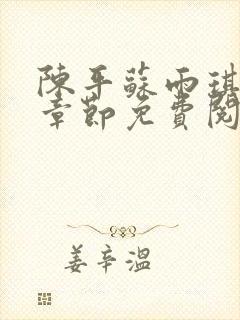 陳平蘇雨琪
章節免費閱
姜辛溫